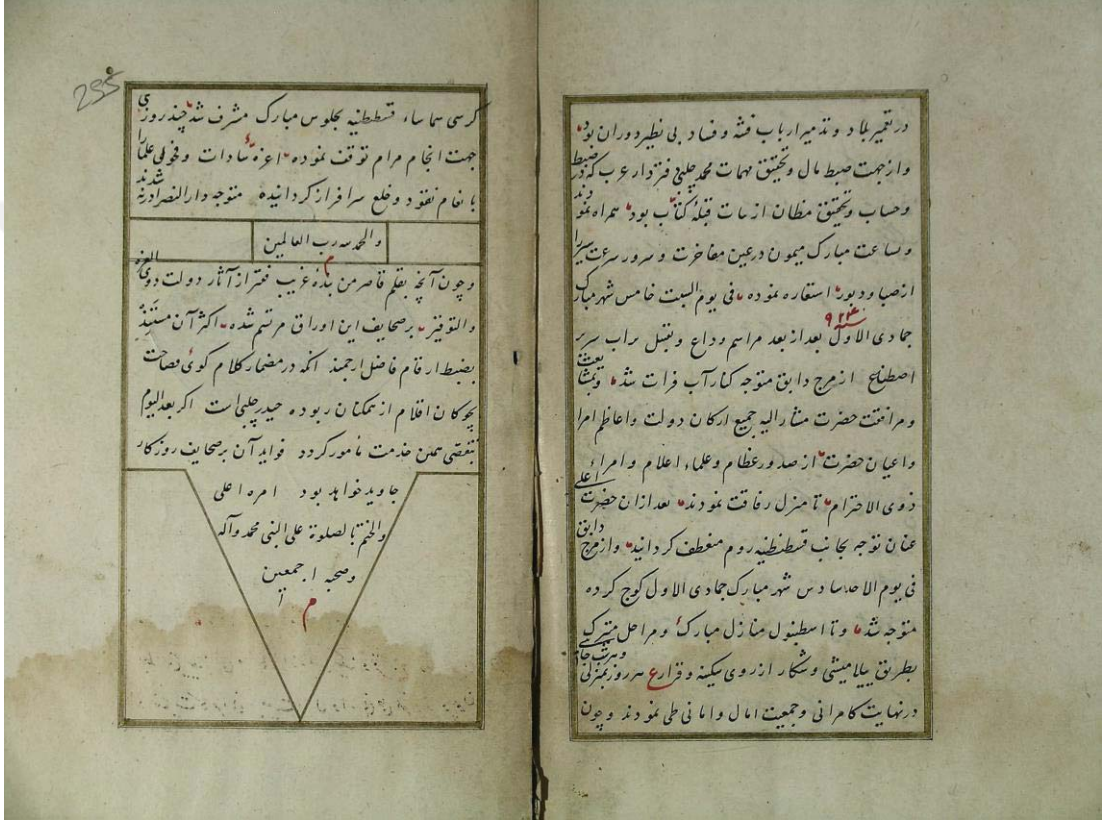 در تعمیر بلاد و تدمیر ارباب فتنه و فساد بی نظیر دوران بود
و از جهت ضبط مال و تحقیق مهمات محمد چلبی دفتردار عرب که در ضبط
و حساب و تحقیق مظان از مات قبلهٔ کتاب بود همراه نمودند
و بساعت مبارک میمون در عین مفاخرت و سرور سرعت سیر را
از صبا و دبور استعاره نموده فی یوم السبت خامس شهر مبارک
جمادی الاول ۹۲۴ سنه بعد از بعد مراسم وداع و تقبیل تراب سریر
اصطناع از مرج دابق متوجه کنار آب فرات شد و بمشایعت
و مرافقت حضرت مشار الیه جمیع ارکان دولت و اعاظم امرا
و اعیان حضرت از صدور عظام و علماء اعلام و امراء
ذوی الاحترام تا منزل رفاقت نمودند بعد از ان حضرت اعلی
عنان توجه بجانب قسطنطنیه روم منعطف کردانید و از مرج دابق
فی یوم الاحد سادس شهر مبارک جمادی الاول کوچ کرده
متوجه شد و تا اسطنبول منازل مبارک و مراحل متبرک
بطریق ییلامیشی و شکار از روی سکینه و قرار ع هر روز بمنزلی و هر شب جای
در نهایت کامرانی و جمعیت امال و امانی طی نمودند و چون
255
کرسی سما ساء قسطنطنیه بجلوس مبارک مشرف شد چند روزی
جهت انجام مرام توقف نموده اعزهٔ سادات و فحولی علما را
با نعام نقود و خلع سرافراز کردانیده متوجه دار النصر ادرنه شدند
والحمد لله رب العالمین
م
و چون آنچه بقلم قاصر من بندهٔ غریب فقیر از آثار دولت ذوی العزة
والتوقیر بر صحایف این اوراق مرتسم شده اکثر آن مستند
بضبط ارقام فاضل ارجمند انکه در مضمار کلام کوی فصاحت
بچوکان اقلام از همکنان ربوده حیدر چلبی است اکر بعد الیوم
بتقصی همین خدمت مأمور کردد فواید آن بر صحایف روزکار
جاوید خواهد بود امره اعلی
والختم بالصلوة علی النبی محمد و آله
وصحبه اجمعین
م